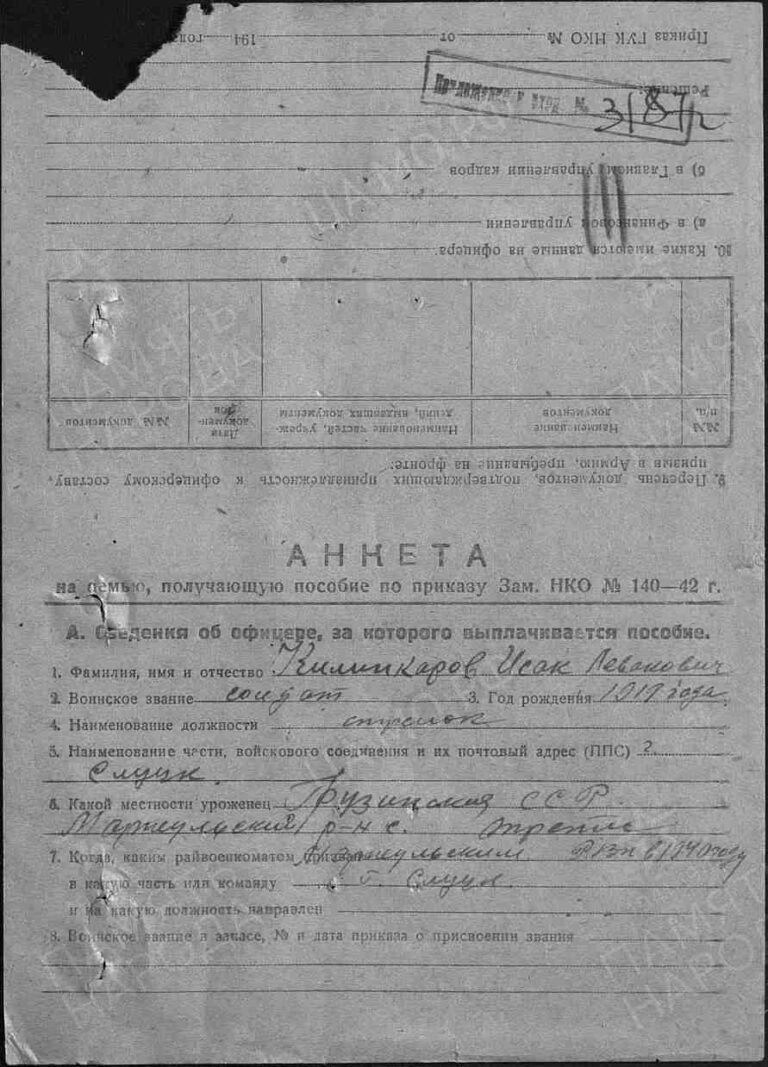 АНКЕТА
на семью, получающую пособие по приказу Зам. НКО № 140—42 г.
А. Сведения об офицере, за которого выплачивается пособие.
1. Фамилия, имя и отчество Килинкаров Исак Левакович
2. Воинское звание солдат 3. Год рождения 1917 года
4. Наименование должности стрелок
5. Наименование части, войскового соединения и их почтовый адрес (ППС) г.
Слуцк.
6. Какой местности уроженец Грузинская ССР.
р-н с.
7. Когда, каким райвоенкоматом РВК в 1940 году
в какую часть или команду г. Слуцк.
и на какую должность направлен
8. Воинское звание в запасе, № и дата приказа о присвоении звания
9. Перечень документов, подтверждающих принадлежность к офицерскому составу,
призыв в Армию, пребывание на фронте:
№№ п/п. Наименование документов Наименование частей, учреждений, выдавших документы Дата документов №№ документов
10. Какие имеются данные на офицера.
а) в Финансовом управлении
б) в Главном управлении кадров
Решение:
Приказ ГУК НКО № от 194 года
ПАМЯТЬ
НАРОДА